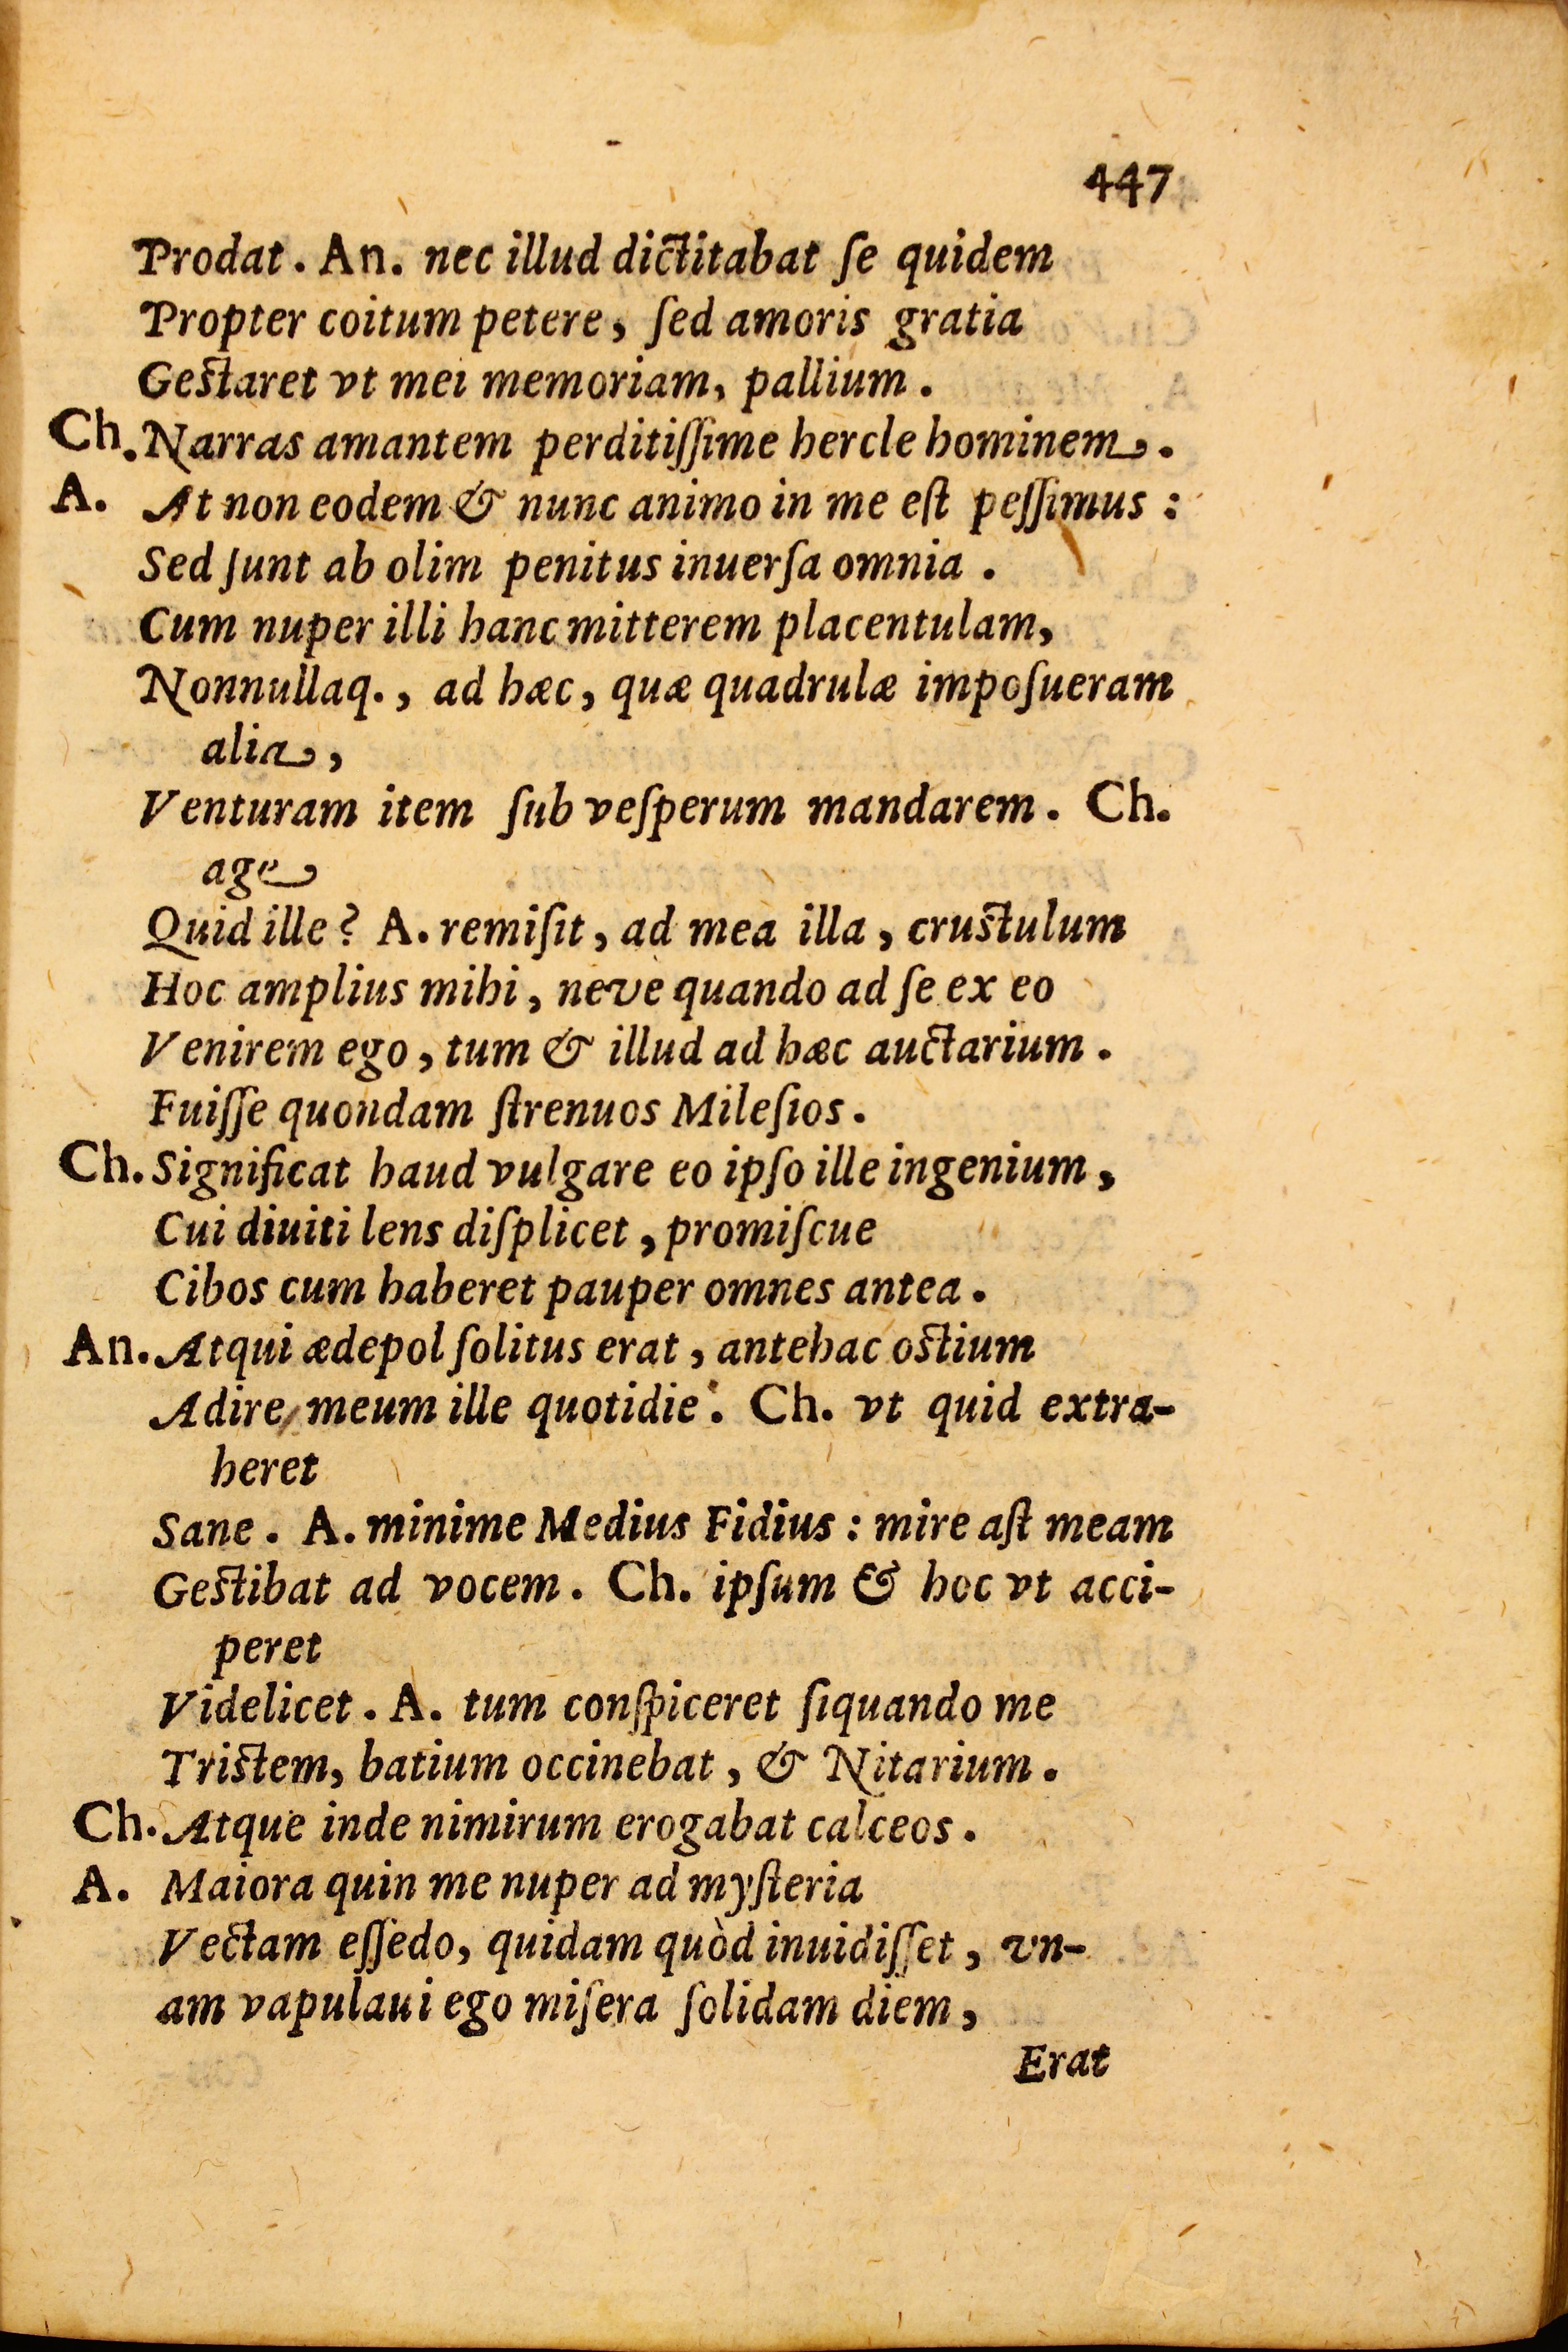 447
Prodat. An. nec illud dictitabat ſe quidem
Propter coitum petere, ſed amoris gratia
Geſtaret vt mei memoriam, pallium.
Ch. Narras amantem perditiſſime hercle hominem.
A. At non eodem & nunc animo in me eſt peſſimus:
Sed ſunt ab olim penitus inuerſa omnia.
Cum nuper illi hanc mitterem placentulam,
Nonnullaq., ad hæc, quæ quadrulæ impoſueram
alia,
Venturam item ſub veſperum mandarem. Ch.
age
Quid ille? A. remiſit, ad mea illa, cruſtulum
Hoc amplius mihi, nevè quando ad ſe ex eo
Venirem ego, tum & illud ad hæc auctarium.
Fuiſſe quondam ſtrenuos Mileſios.
Ch. Significat haud vulgare eo ipſo ille ingenium,
Cui diuiti lens diſplicet, promiſcue
Cibos cum haberet pauper omnes antea.
An. Atqui ædepol ſolitus erat, antehac oſtium
Adire, meum ille quotidie. Ch. vt quid extra-
heret
Sane. A. minime Medius Fidius: mire aſt meam
Geſtibat ad vocem. Ch. ipſum & hoc vt acci-
peret
Videlicet. A. tum conſpiceret ſiquando me
Triſtem, batium occinebat, & Nitarium.
Ch. Atque inde nimirum erogabat calceos.
A. Maiora quin me nuper ad myſteria
Vectam eſſedo, quidam quòd inuidiſſet, vn-
am vapulaui ego miſera ſolidam diem,
Erat